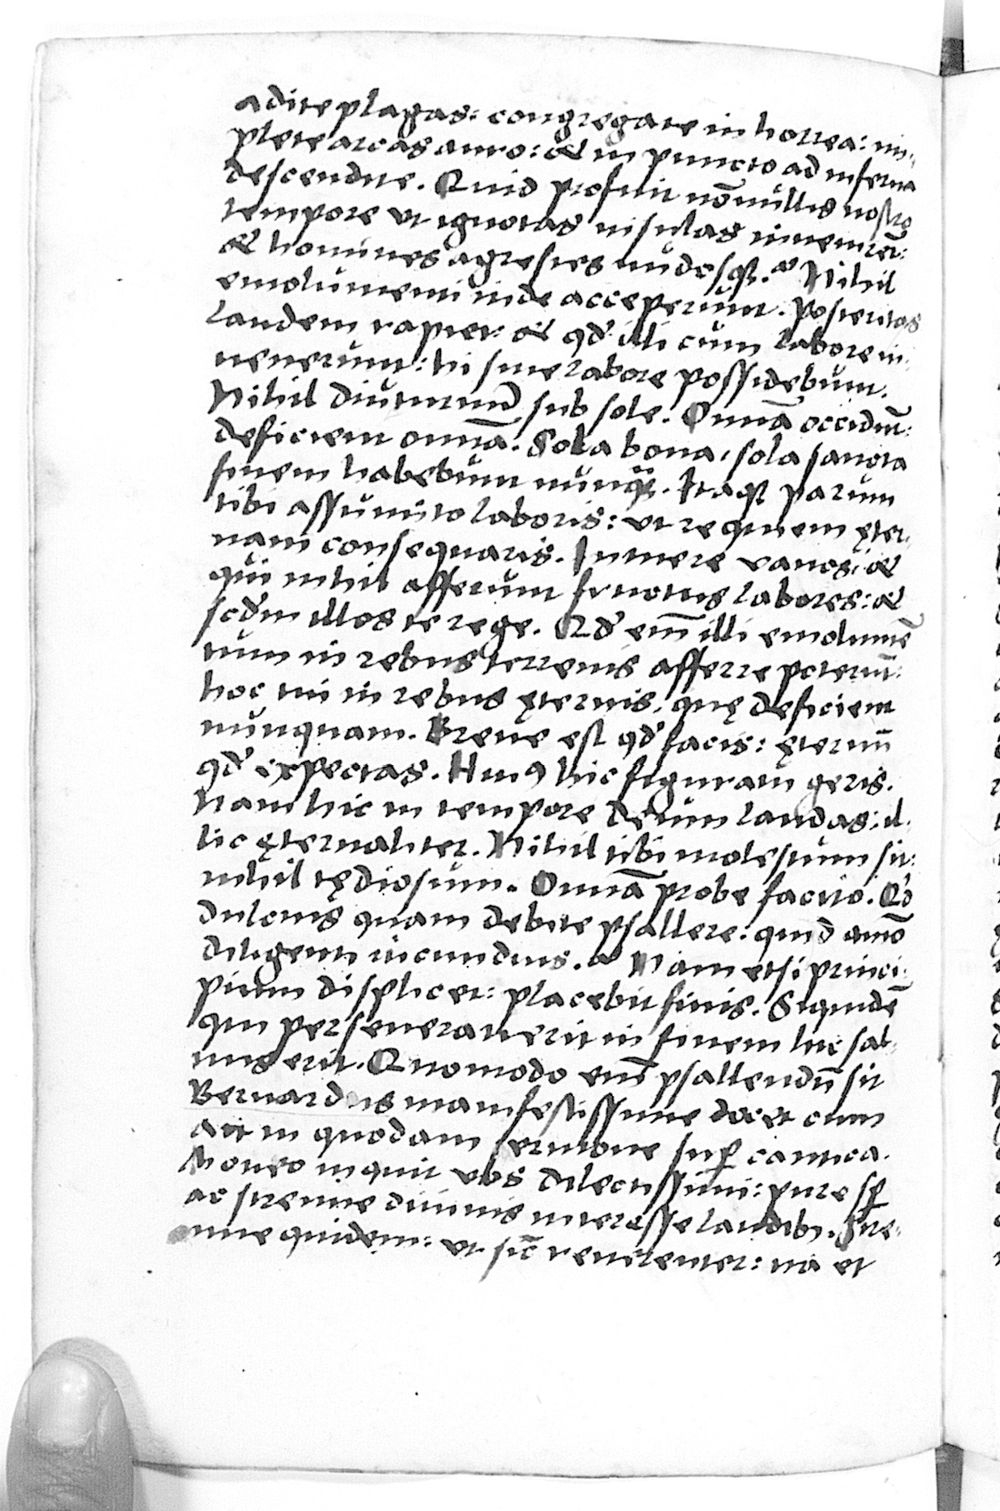 adite plagas: congregate in horrea: im-
plete arcas auro: & in puncto ad inferna
descendite. Quid profuit nōnullis nostro
tempore ut ignotas insulas inuenirēt:
& homines agrestes nudosq;. Nihil
emolumenti inde acceperunt. Posteritas
laudem rapiet: & qd' illi cum labore in-
uenerunt: hi sine labore possidebunt.
Nihil diuturnū sub sole. Omnīa occidūt:
deficient omnīa. Sola bona, sola sancta
finem habebunt nunq̄. Itaq; parum
tibi assumito laboris: ut requiem ęter-
nam consequaris. Intuere uanos, &
qui nihil afferunt fructus labores: &
scd'm illos te rege. Qd' em̄ illi emolumē
tum in rebus terrenis afferre poterūt:
hoc tu in rebus ęternis, quę deficient
nunquam. Breue est qd' facis: ęternū
qd' expectas. Huiꝰ hic figuram geris.
Nam hic in tempore deum laudas: il-
lic ęternaliter. Nihil tibi molestum sit:
nihil tędiosum. Omnīa probe facito. Qd'
dulcius quam debite psallere: quid amō
diligenti iucundius. Nam etsi princi-
pium displicet: placebit finis. Siquidē
qui perseuerauerit in finem hic sal-
uus erit. Quomodo em̄ psallendū sit
Bernardus manifestissime docet cum
ait in quodam sermone sup̄ cantica.
Moneo inquit uos dilectissimi: pure sp̄
ac strenue diuinis interesse laudib;. Stre-
nue quidem: ut sic̄ reuerenter: ita et